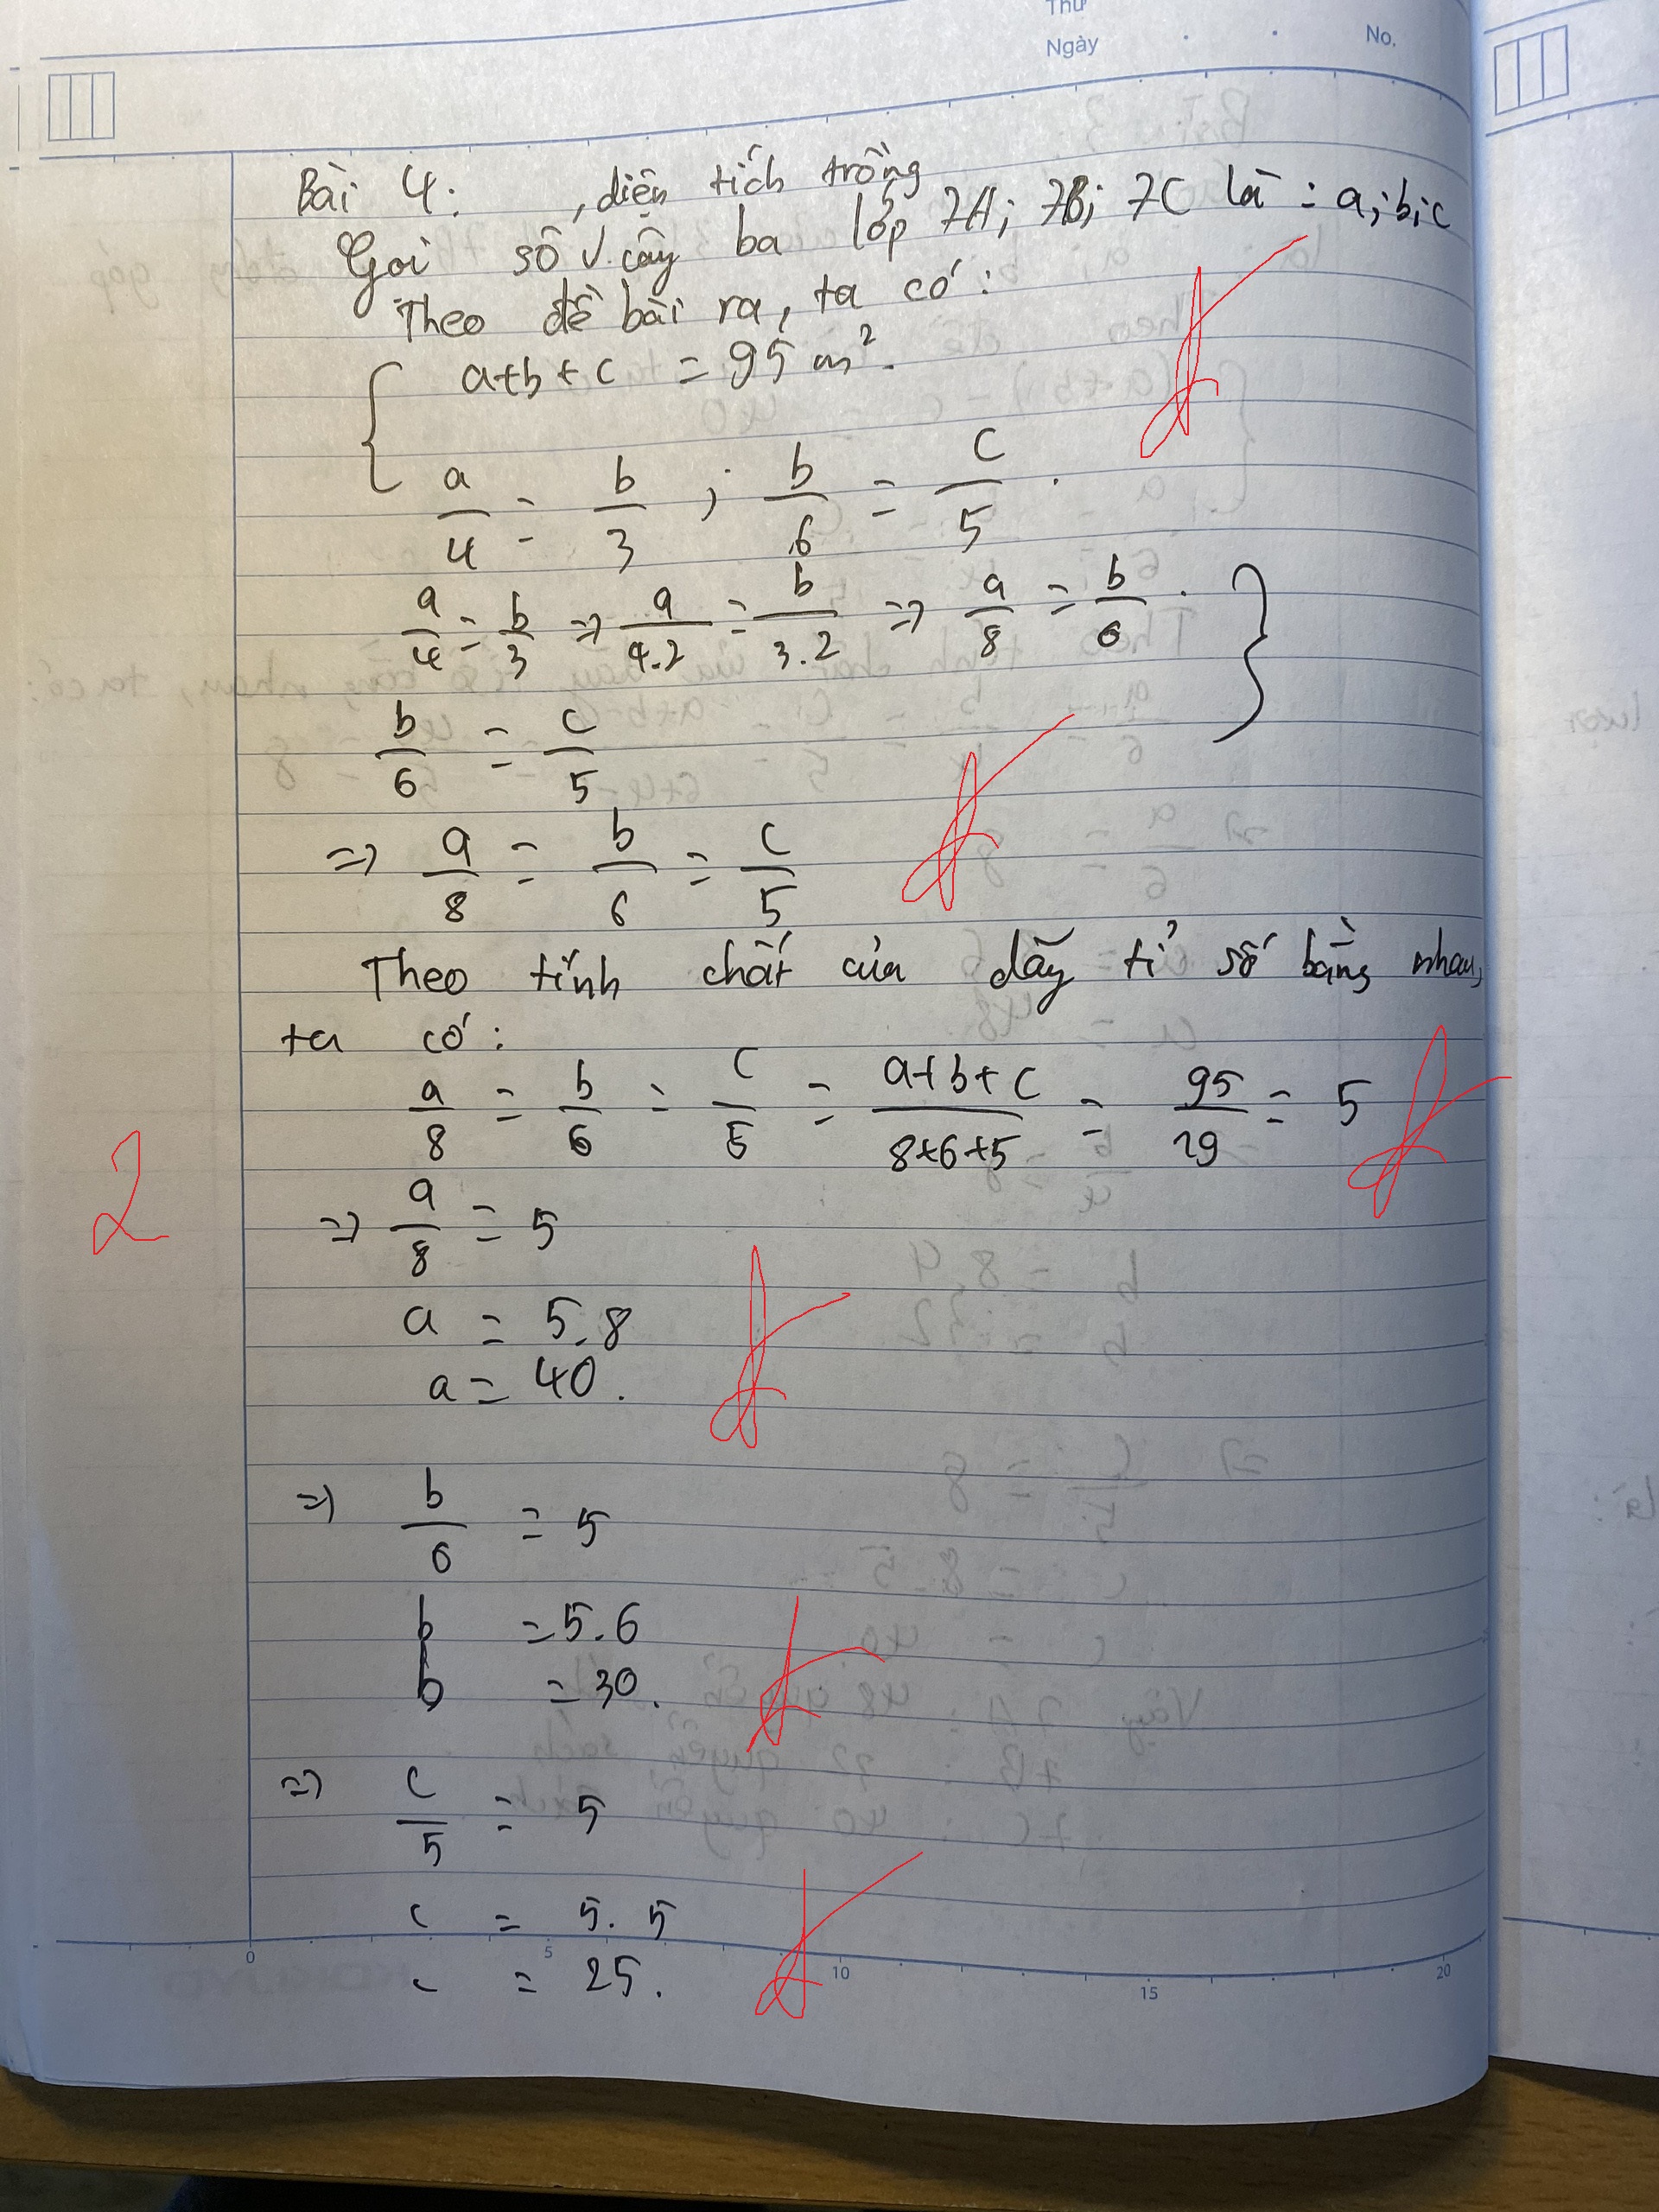 Thứ
Ngày
No.
Bài 4:
, diện tích trồng
Gọi số √ cây ba lớp 7A; 7B; 7C là : a; b; c
Theo đề bài ra, ta có:
{ a+b+c = 95 m².
a/4 = b/3 ; b/6 = c/5 .
a/4 = b/3 => a/4.2 = b/3.2 => a/8 = b/6 . }
b/6 = c/5
=> a/8 = b/6 = c/5
Theo tính chất của dãy tỉ số bằng nhau,
ta có:
a/8 = b/6 = c/5 = a+b+c/8+6+5 = 95/19 = 5
2
=> a/8 = 5
a = 5.8
a = 40.
=> b/6 = 5
b = 5.6
b = 30.
=> c/5 = 5
c = 5.5
c = 25.
0 5 10 15 20